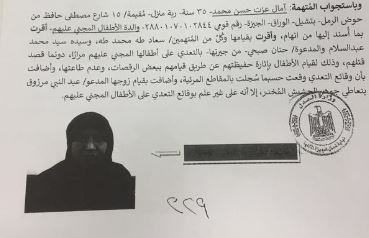 وباستجواب المتهمة: آمال عزت حسن محمد- ٣٥ سنة- ربة منزل- مُقيمة/ ١٥ شارع مصطفى حافظ من
حوض الرمل- بتشتيل- الوراق- الجيزة- رقم قومي ٢٨٨٠١٠٧٠١٠٢٨٤٤- والدة الأطفال المجني عليهم- أقرت
بما أسند إليها من اتهام، وأقرت بقيامها وكُلٍ من المتهمين/ سعاد طه محمد طه، وسيده سيد محمد
عبدالسلام والمدعوة/ حنان صبحي- من جيرنها- بالتعدي على أطفالها المجني عليهم مرارًا، دونما قصد
قتلهم، وذلك لقيام الأطفال بإثارة حفيظتهم عن طريق قيامهم ببعض الرقصات، وعدم طاعتها، وأضافت
بأن وقائع التعدي وقعت حسبما سُجلت بالمقاطع المرئية، وأضافت بقيام زوجها المدعو/ عبد النبي مرزوق
بتعاطي جوهر الحشيش المُخدر، إلا أنه على غير علم بوقائع التعدي على الأطفال المجني عليهم.
وزارة العدل